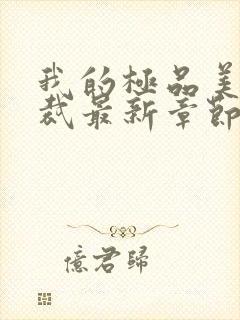 我的極品美
裁最新章節
億君歸